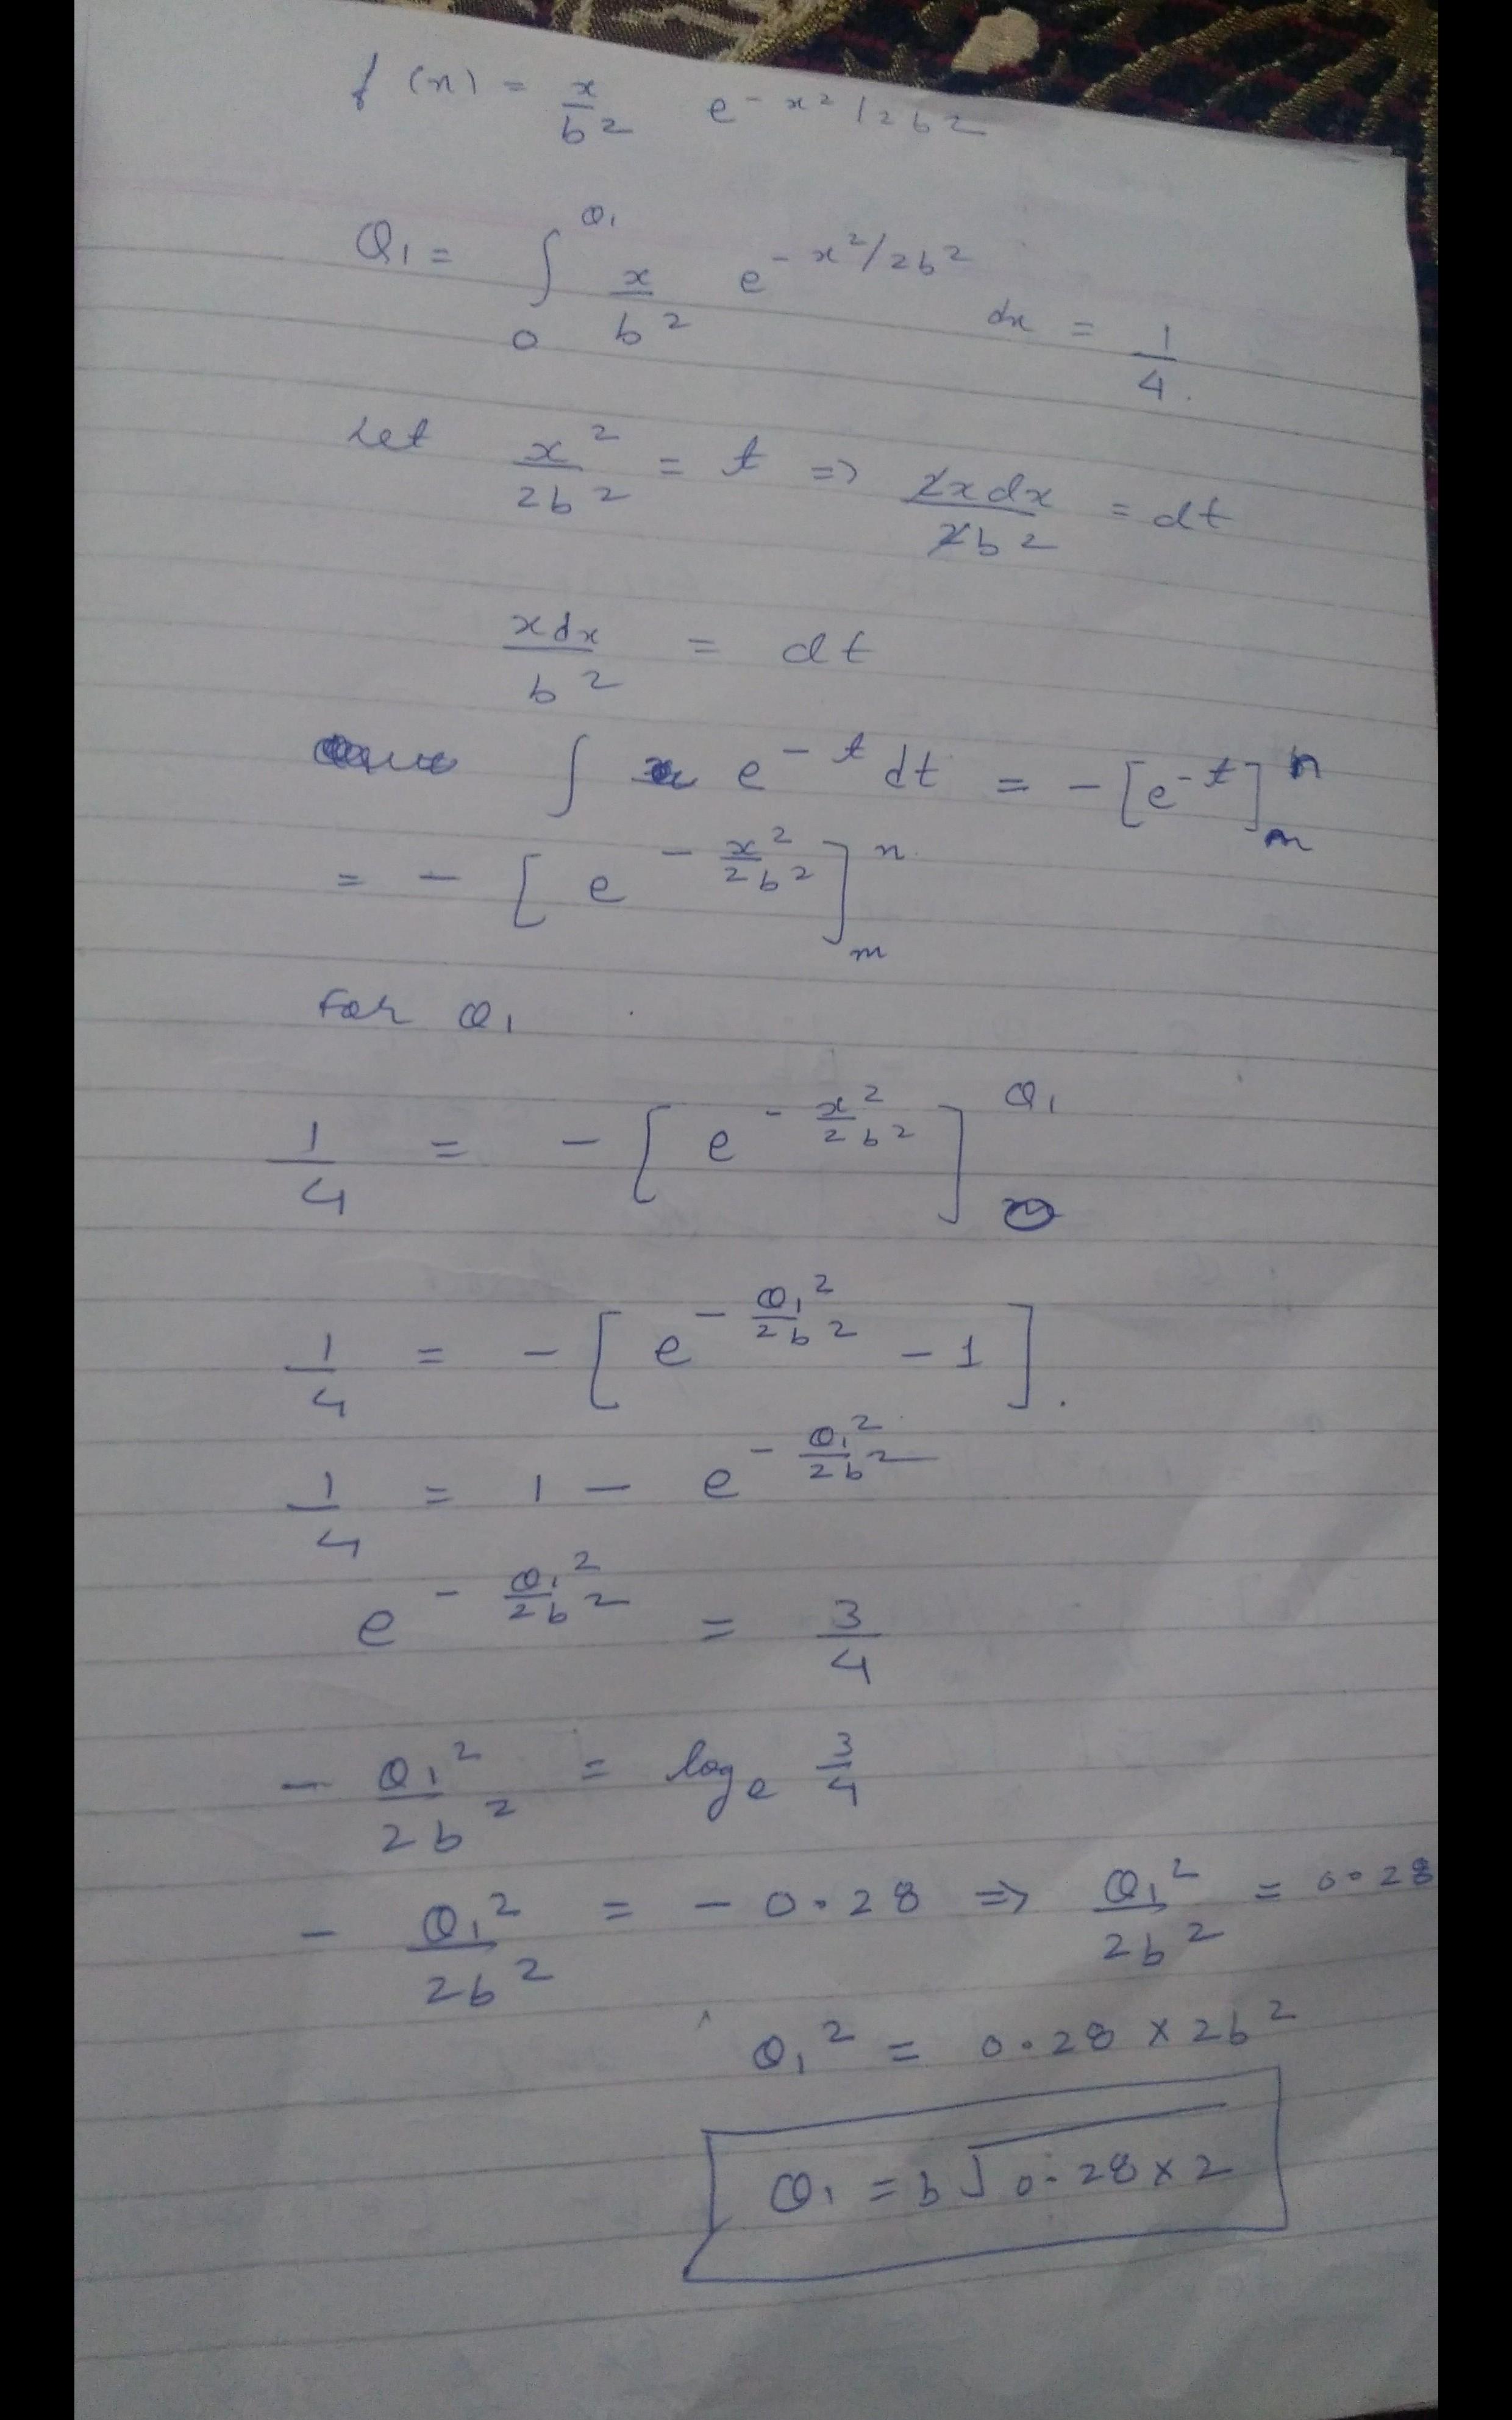 f(x) = x/b² e^-x²/2b²
Q₁ = ∫₀^Q₁ x/b² e^-x²/2b² dx = 1/4.
Let x²/2b² = t => 2xdx/2b² = dt
xdx/b² = dt
∫ e^-t dt = -[e^-t]ₘⁿ
= -[e^-x²/2b²]ₘⁿ
For Q₁
1/4 = -[e^-x²/2b²]₀^Q₁
1/4 = -[e^-Q₁²/2b² - 1].
1/4 = 1 - e^-Q₁²/2b²
e^-Q₁²/2b² = 3/4
- Q₁²/2b² = logₑ 3/4
- Q₁²/2b² = - 0.28 => Q₁²/2b² = 0.28
Q₁² = 0.28 × 2b²
Q₁ = b√0.28×2